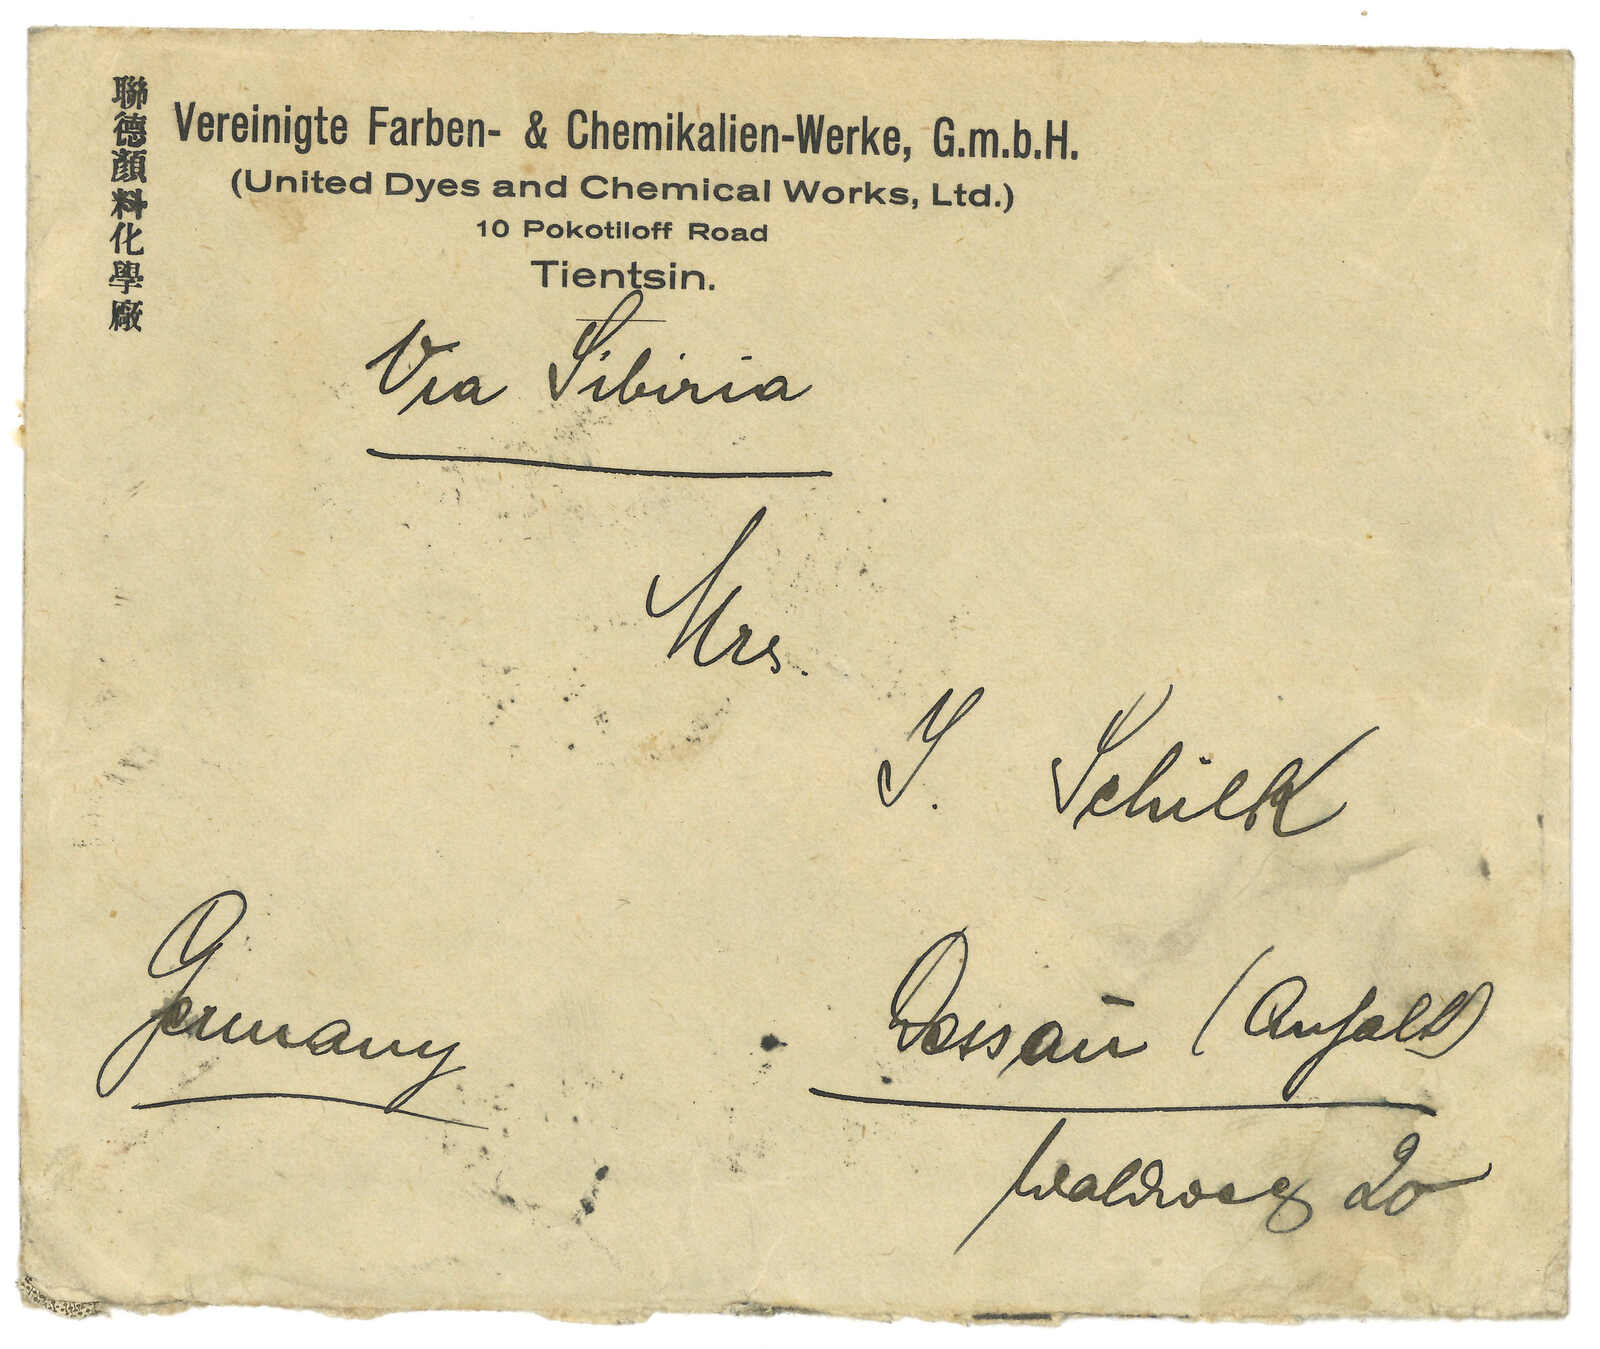 聯德顏料化學廠
Vereinigte Farben- & Chemikalien-Werke, G.m.b.H.
(United Dyes and Chemical Works, Ltd.)
10 Pokotiloff Road
Tientsin.
Via Sibiria
Mrs.
J. Schilk
Germany
Dessau (Anhalt)
Waldweg 20